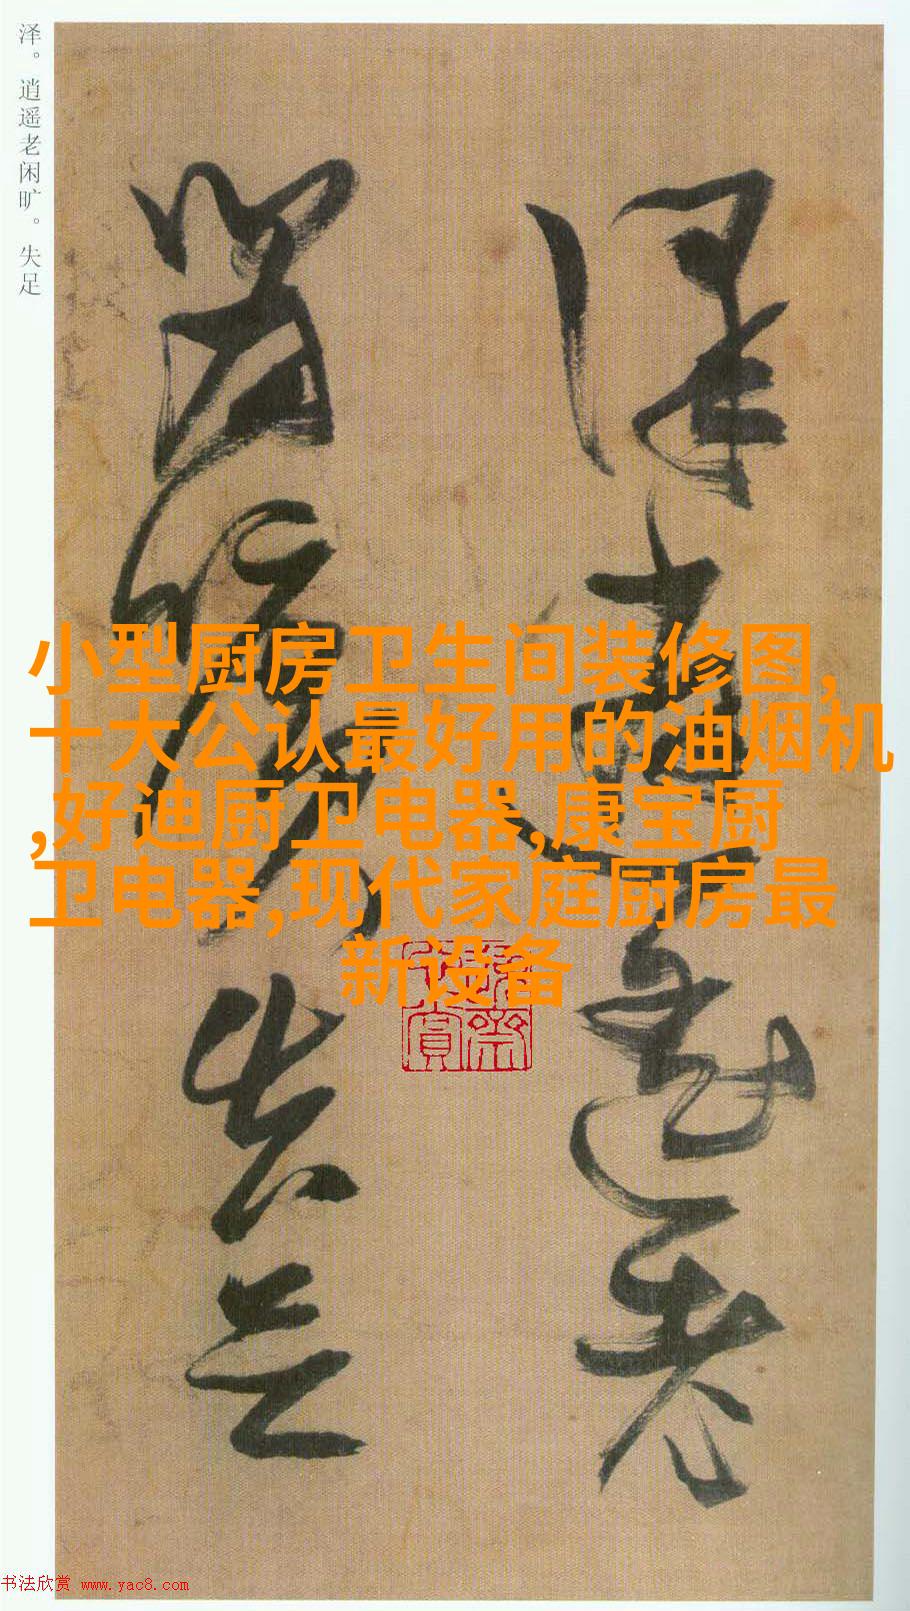 泽。逍遥老闲旷。失足
泽逍遥老
闲旷失足
小型厨房卫生间装修图,
十大公认最好用的油烟机
,好迪厨卫电器,康宝厨
卫电器,现代家庭厨房最
新设备
书法欣赏 www.yac8.com